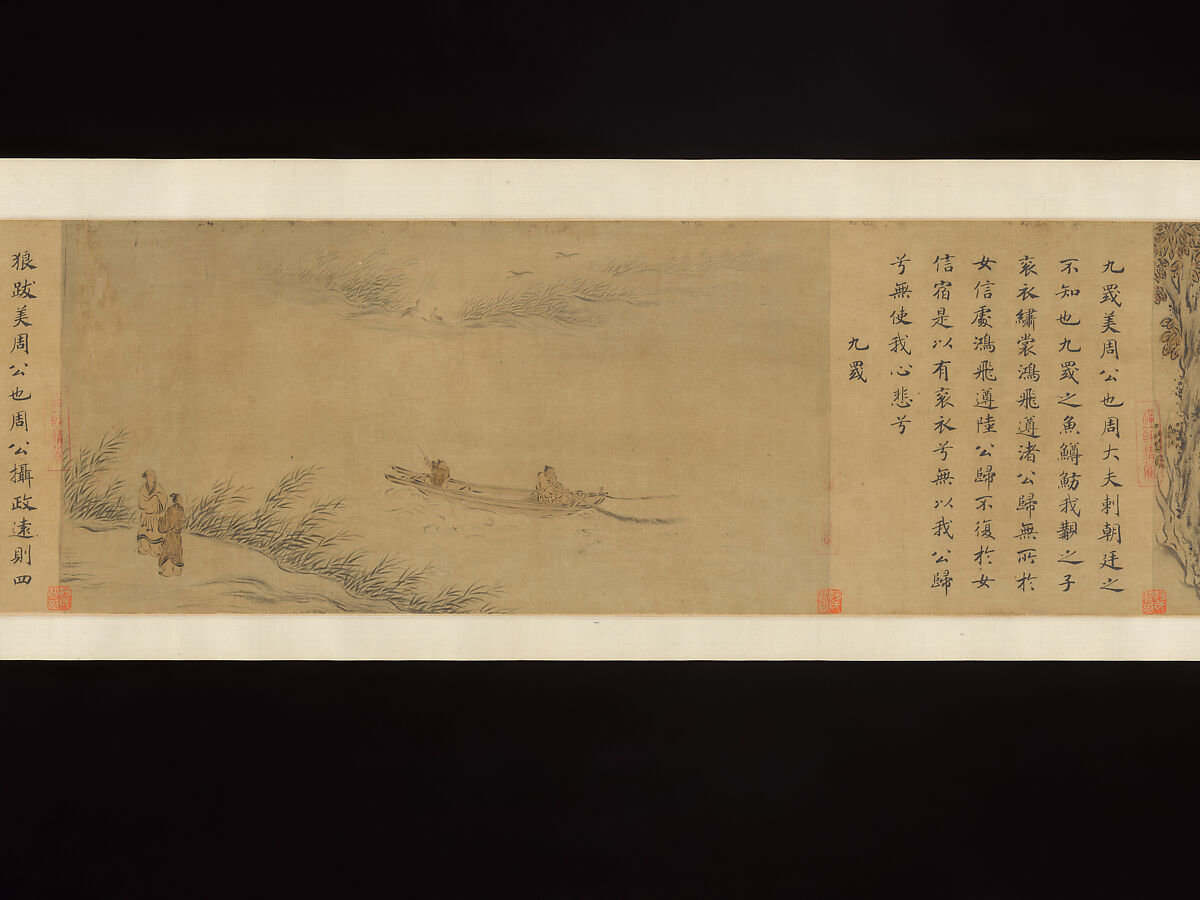 九罭美周公也周大夫刺朝廷之
不知也九罭之魚鱒魴我覯之子
衮衣繡裳鴻飛遵渚公歸無所於
女信處鴻飛遵陸公歸不復於女
信宿是以有衮衣兮無以我公歸
兮無使我心悲兮
九罭
狼跋美周公也周公攝政遠則四